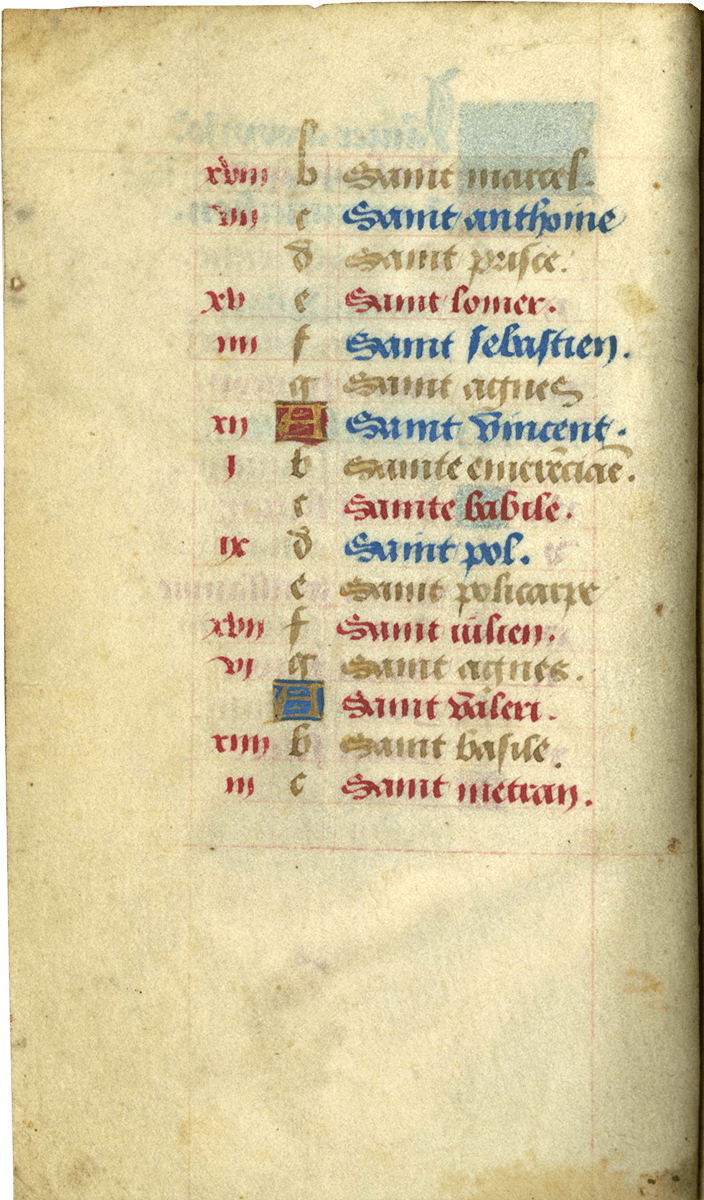 xviii b Saint marcel.
viii c Saint anthoine
d Saint prisce.
xv e Saint lomer.
iiii f Saint sebastien.
g Saint agnes
xii A Saint vincent.
i b Sainte emerēciāe.
c Sainte babile.
ix d Saint pol.
e Saint policarpe
xvii f Saint iulien.
vi g Saint agnes.
A Saint valeri.
xiiii b Saint basile.
iii c Saint metran.